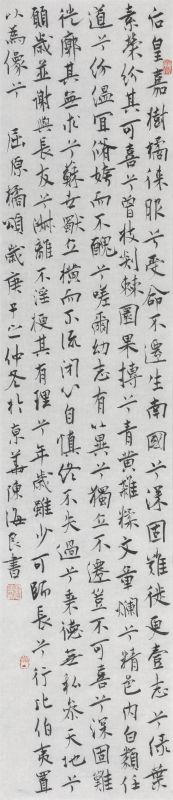 后皇嘉樹橘徠服兮受命不遷生南國兮深固難徙更壹志兮綠葉
素榮紛其可喜兮曾枝剡棘圜果摶兮青黄雜糅文章爛兮精色内白類任
道兮紛緼宜脩姱而不醜兮嗟爾幼志有以異兮獨立不遷豈不可喜兮深固難
徙廓其無求兮蘇世獨立横而不流閉心自慎終不失過兮秉德無私参天地兮
願歲並謝與長友兮淑離不淫梗其有理兮年歲雖少可師長兮行比伯夷置
以為像兮 屈原橘頌歲庚子之仲冬於京華陳海良書